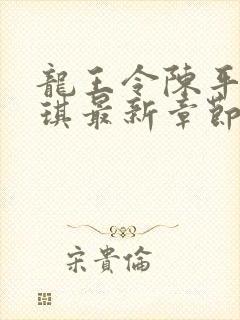 龍王令陳平
琪最新章節
宋貴倫